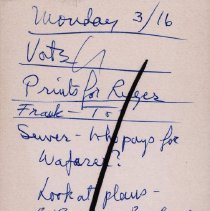 Monday 3/16
Vote
Prints for Ruges
Frank - To
Sewer - Who pays for
Wafarer?
Look at plans -